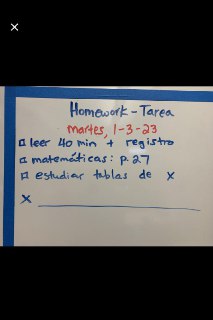 Homework - Tarea
martes, 1-3-23
leer 40 min + registro
matemáticas: p. 27
estudiar tablas de x
x